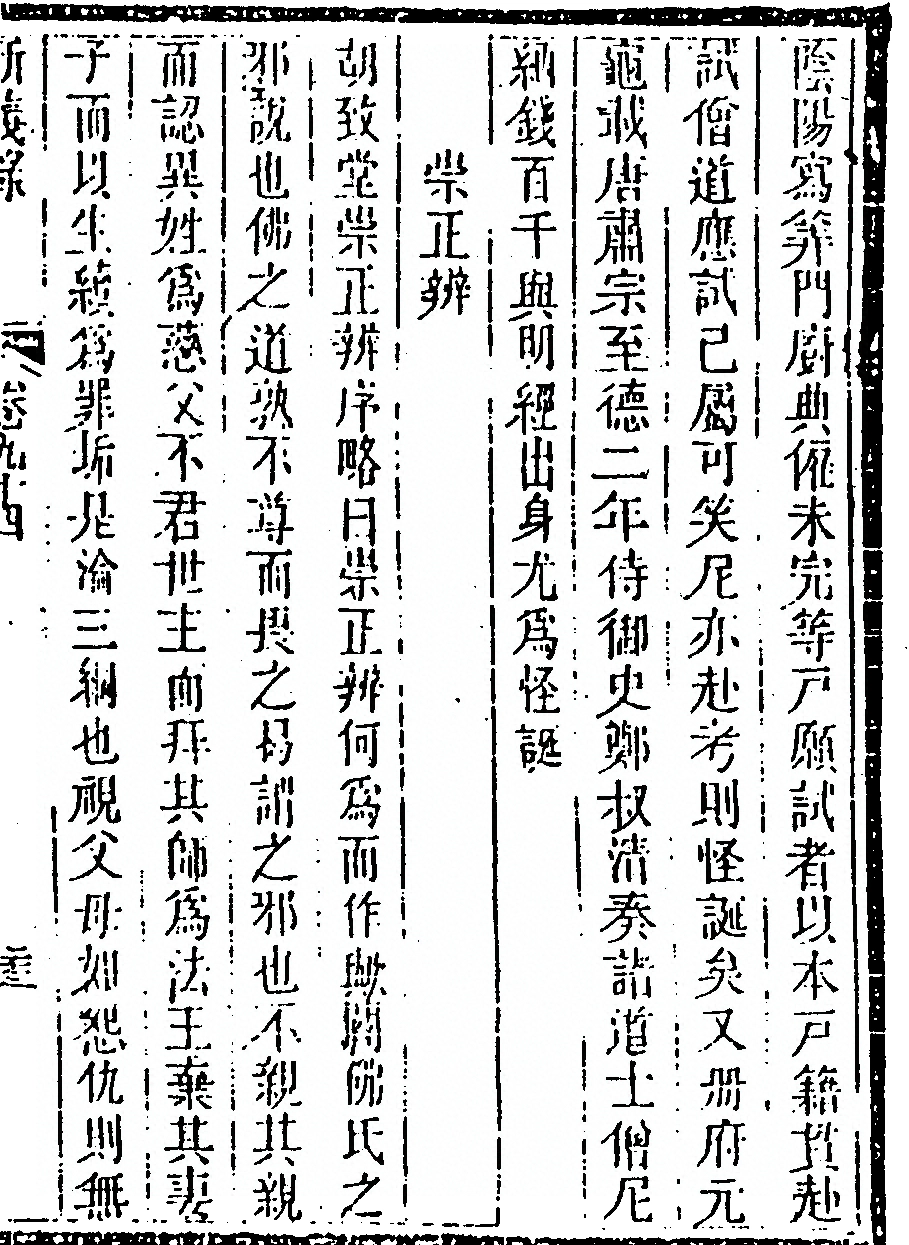 陰陽寫算門廚典僱未完等戶願試者以本戶籍貫赴
試僧道應試已屬可笑尼亦赴考則怪誕矣又冊府元
龜載唐肅宗至德二年侍御史鄭叔清奏諸道士僧尼
納錢百千與明經出身尤爲怪誕
崇正辨
胡致堂崇正辨序略曰崇正辨何爲而作歟闢佛氏之
邪說也佛之道孰不尊而畏之曷謂之邪也不親其親
而認異姓爲慈父不君世主而拜其師爲法王棄其妻
子而以生續爲罪垢是淪三綱也視父母如怨仇則無
卷九十四